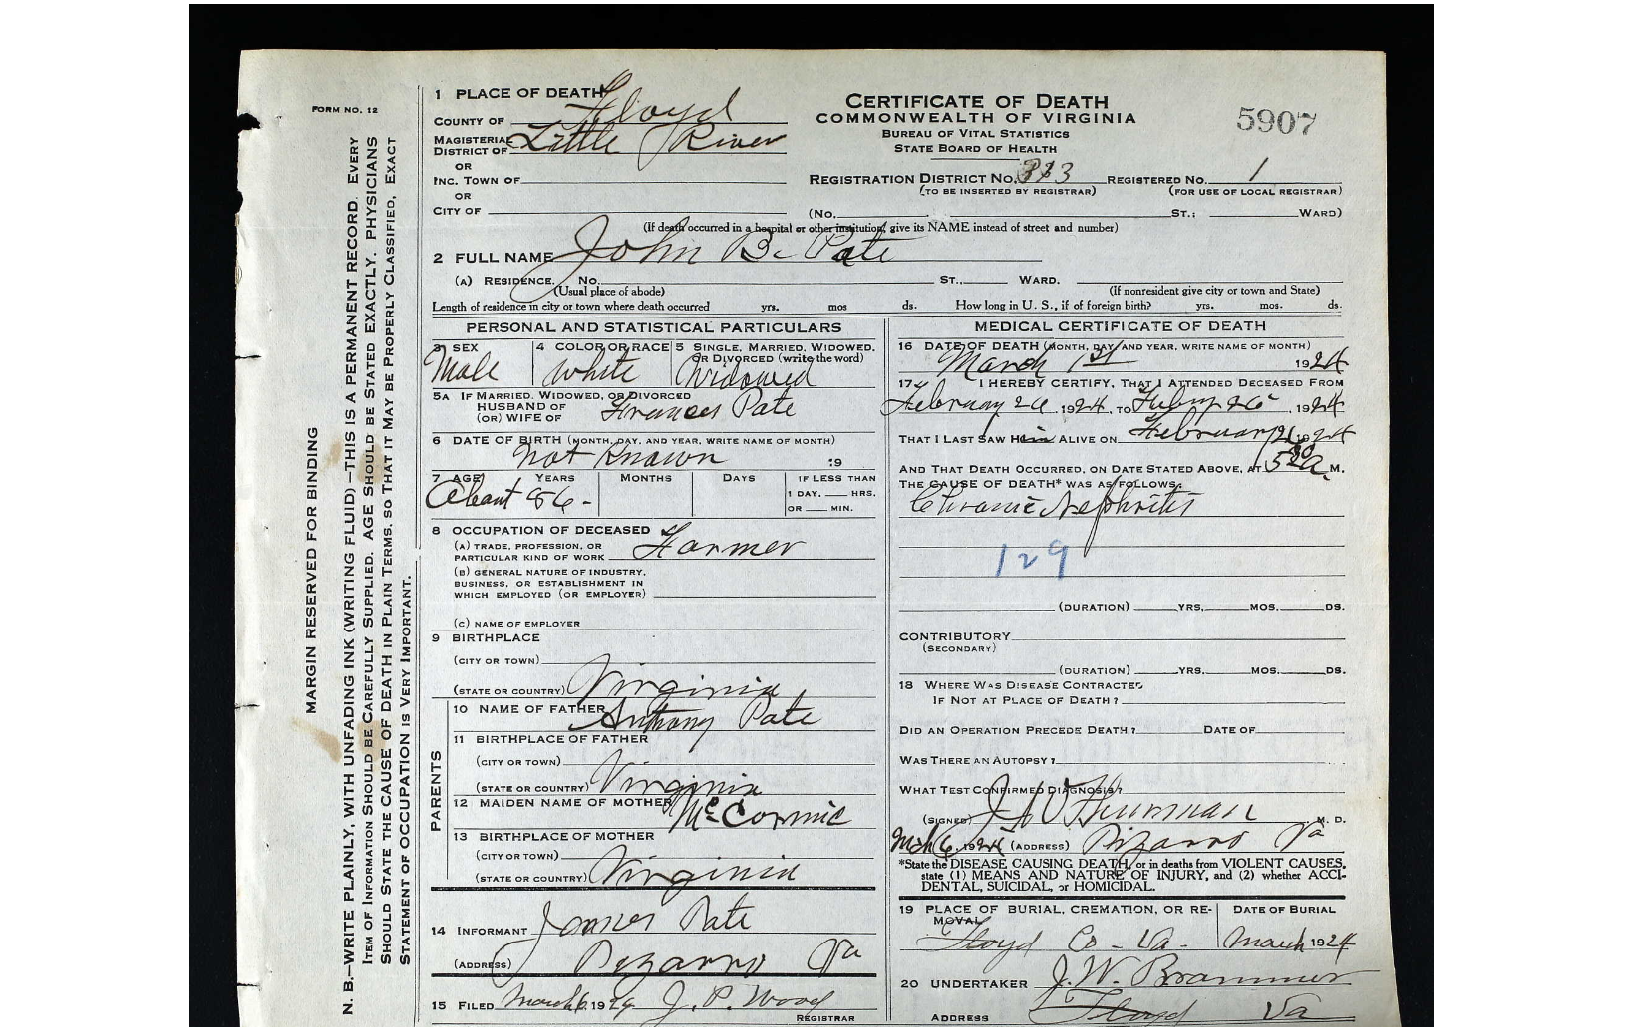 FORM NO. 12
MARGIN RESERVED FOR BINDING
N. B.—WRITE PLAINLY, WITH UNFADING INK (WRITING FLUID)—THIS IS A PERMANENT RECORD. EVERY
ITEM OF INFORMATION SHOULD BE CAREFULLY SUPPLIED. AGE SHOULD BE STATED EXACTLY. PHYSICIANS
SHOULD STATE THE CAUSE OF DEATH IN PLAIN TERMS, SO THAT IT MAY BE PROPERLY CLASSIFIED. EXACT
STATEMENT OF OCCUPATION IS VERY IMPORTANT.
1 PLACE OF DEATH
COUNTY OF Floyd
MAGISTERIAL DISTRICT OF Little River
OR
INC. TOWN OF
OR
CITY OF
CERTIFICATE OF DEATH
COMMONWEALTH OF VIRGINIA
BUREAU OF VITAL STATISTICS
STATE BOARD OF HEALTH
5907
REGISTRATION DISTRICT No. 313 REGISTERED No. 1
(TO BE INSERTED BY REGISTRAR) (FOR USE OF LOCAL REGISTRAR)
(No. ST.; WARD)
(If death occurred in a hospital or other institution, give its NAME instead of street and number)
2 FULL NAME John B. Pate
(A) RESIDENCE. No. ST., WARD.
(Usual place of abode) (If nonresident give city or town and State)
Length of residence in city or town where death occurred yrs. mos ds. How long in U. S., if of foreign birth? yrs. mos. ds.
PERSONAL AND STATISTICAL PARTICULARS
3 SEX 4 COLOR OR RACE 5 SINGLE, MARRIED, WIDOWED, OR DIVORCED (write the word)
Male White Widowed
5A IF MARRIED, WIDOWED, OR DIVORCED
HUSBAND OF
(OR) WIFE OF Frances Pate
6 DATE OF BIRTH (MONTH, DAY, AND YEAR, WRITE NAME OF MONTH)
Not Known 19
7 AGE YEARS MONTHS DAYS IF LESS THAN
1 DAY, HRS.
OR MIN.
About 86-
8 OCCUPATION OF DECEASED
(A) TRADE, PROFESSION, OR
PARTICULAR KIND OF WORK Farmer
(B) GENERAL NATURE OF INDUSTRY,
BUSINESS, OR ESTABLISHMENT IN
WHICH EMPLOYED (OR EMPLOYER)
(C) NAME OF EMPLOYER
9 BIRTHPLACE
(CITY OR TOWN)
(STATE OR COUNTRY) Virginia
PARENTS
10 NAME OF FATHER Anthony Pate
11 BIRTHPLACE OF FATHER
(CITY OR TOWN)
(STATE OR COUNTRY) Virginia
12 MAIDEN NAME OF MOTHER McCormic
13 BIRTHPLACE OF MOTHER
(CITY OR TOWN)
(STATE OR COUNTRY) Virginia
14 INFORMANT James Pate
(ADDRESS) Pizarro Va
15 FILED March 6 1924 J. P. Wood
REGISTRAR
MEDICAL CERTIFICATE OF DEATH
16 DATE OF DEATH (MONTH, DAY, AND YEAR, WRITE NAME OF MONTH)
March 1st 1924
17 I HEREBY CERTIFY, THAT I ATTENDED DECEASED FROM
February 1924, TO 26 1924
THAT I LAST SAW Him ALIVE ON February 26 1924
AND THAT DEATH OCCURRED, ON DATE STATED ABOVE, AT 5 30 a M.
THE CAUSE OF DEATH* WAS AS FOLLOWS:
Chronic Nephritis
129
(DURATION) YRS. MOS. DS.
CONTRIBUTORY
(SECONDARY)
(DURATION) YRS. MOS. DS.
18 WHERE WAS DISEASE CONTRACTED
IF NOT AT PLACE OF DEATH?
DID AN OPERATION PRECEDE DEATH? DATE OF
WAS THERE AN AUTOPSY?
WHAT TEST CONFIRMED DIAGNOSIS?
(SIGNED) J W Thurman M. D.
Mch 6, 1924 (ADDRESS) Pizarro Va
*State the DISEASE CAUSING DEATH, or in deaths from VIOLENT CAUSES,
state (1) MEANS AND NATURE OF INJURY, and (2) whether ACCI-
DENTAL, SUICIDAL, or HOMICIDAL.
19 PLACE OF BURIAL, CREMATION, OR RE- DATE OF BURIAL
MOVAL
Floyd Co - Va - March 1924
20 UNDERTAKER J. W. Brammer
ADDRESS Floyd Va